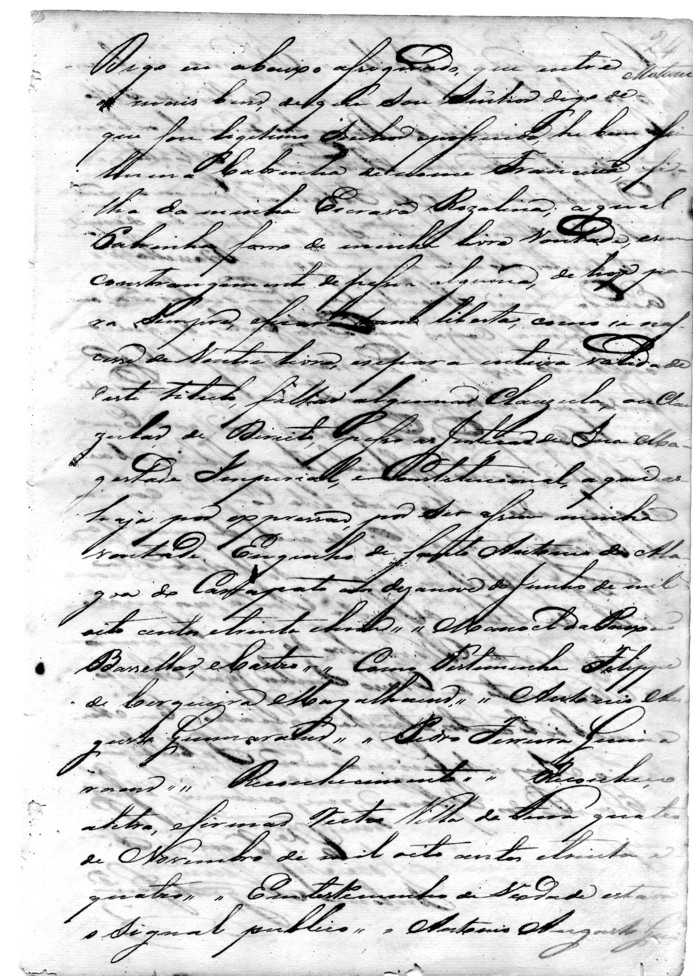 24
Digo eu abaixo asignado, que entre
os mais bens, de que sou Senhor digo de
que sou legitimo Senhor e possuido, he bem a
huma Cabrinha de nome Francisca, fi-
lha da minha Escrava Rozalina, a qual
Cabrinha forro de minha livre vontade, e sem
constrangimento de pessoa alguma, de hoje pa-
ra sempre, e ficará liberta, como se nas-
cera de Ventre livre, e se para a inteira validade
deste titulo, faltar alguma Clauzula, ou Clau-
zulas de Direito, pesso as Justiças de Sua Ma-
gestade Imperial, e Constitucional, a que as
haja por expressas, por ser assim minha
vontade. Engenho de Santo Antonio da
do Carrapato aos dezanove de Junho de mil
oito centos e trinta e hum " " Manoel da
Barcellos, e Castro " " Como Testemunha Felippe
de Cerqueira Magalhaens " " Antonio Au-
gusto Guimaraens " " Pedro Ferreira
" " Reconhecimento " " Reconheço
a letra, e firmas Villa de quatro
de Novembro de mil oito centos e trinta e
quatro " " Em testemunho de Verdade estava
o Signal publico " " Antonio Augusto